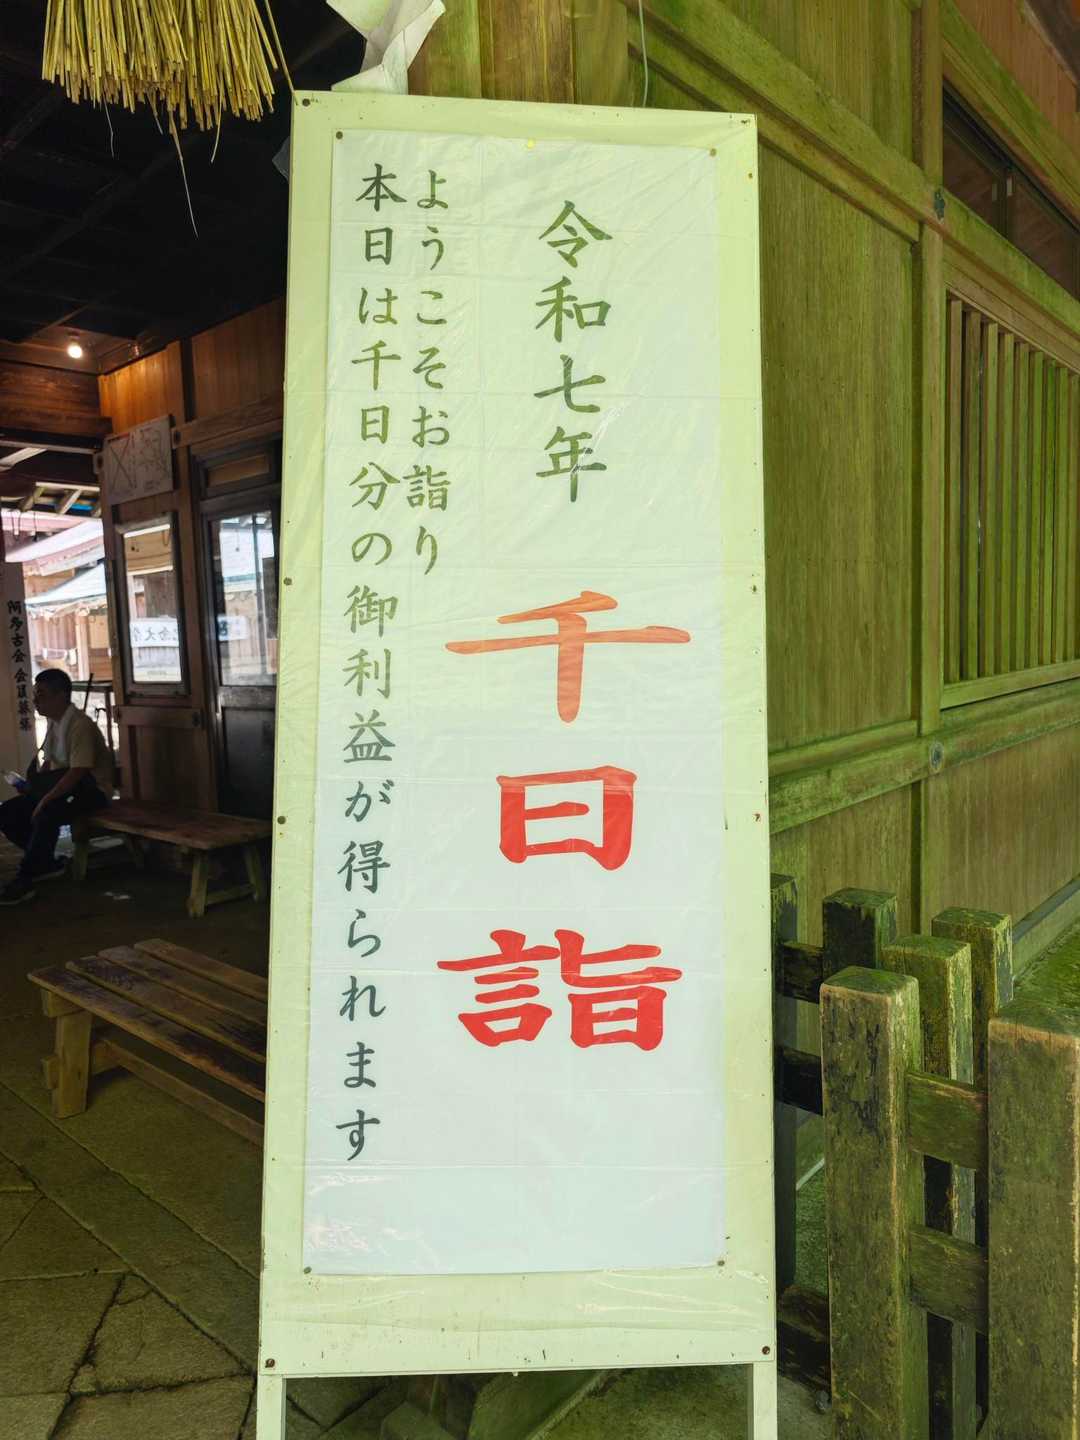 令和七年
千日詣
ようこそお詣り
本日は千日分の御利益が得られます
阿多古会 会員募集